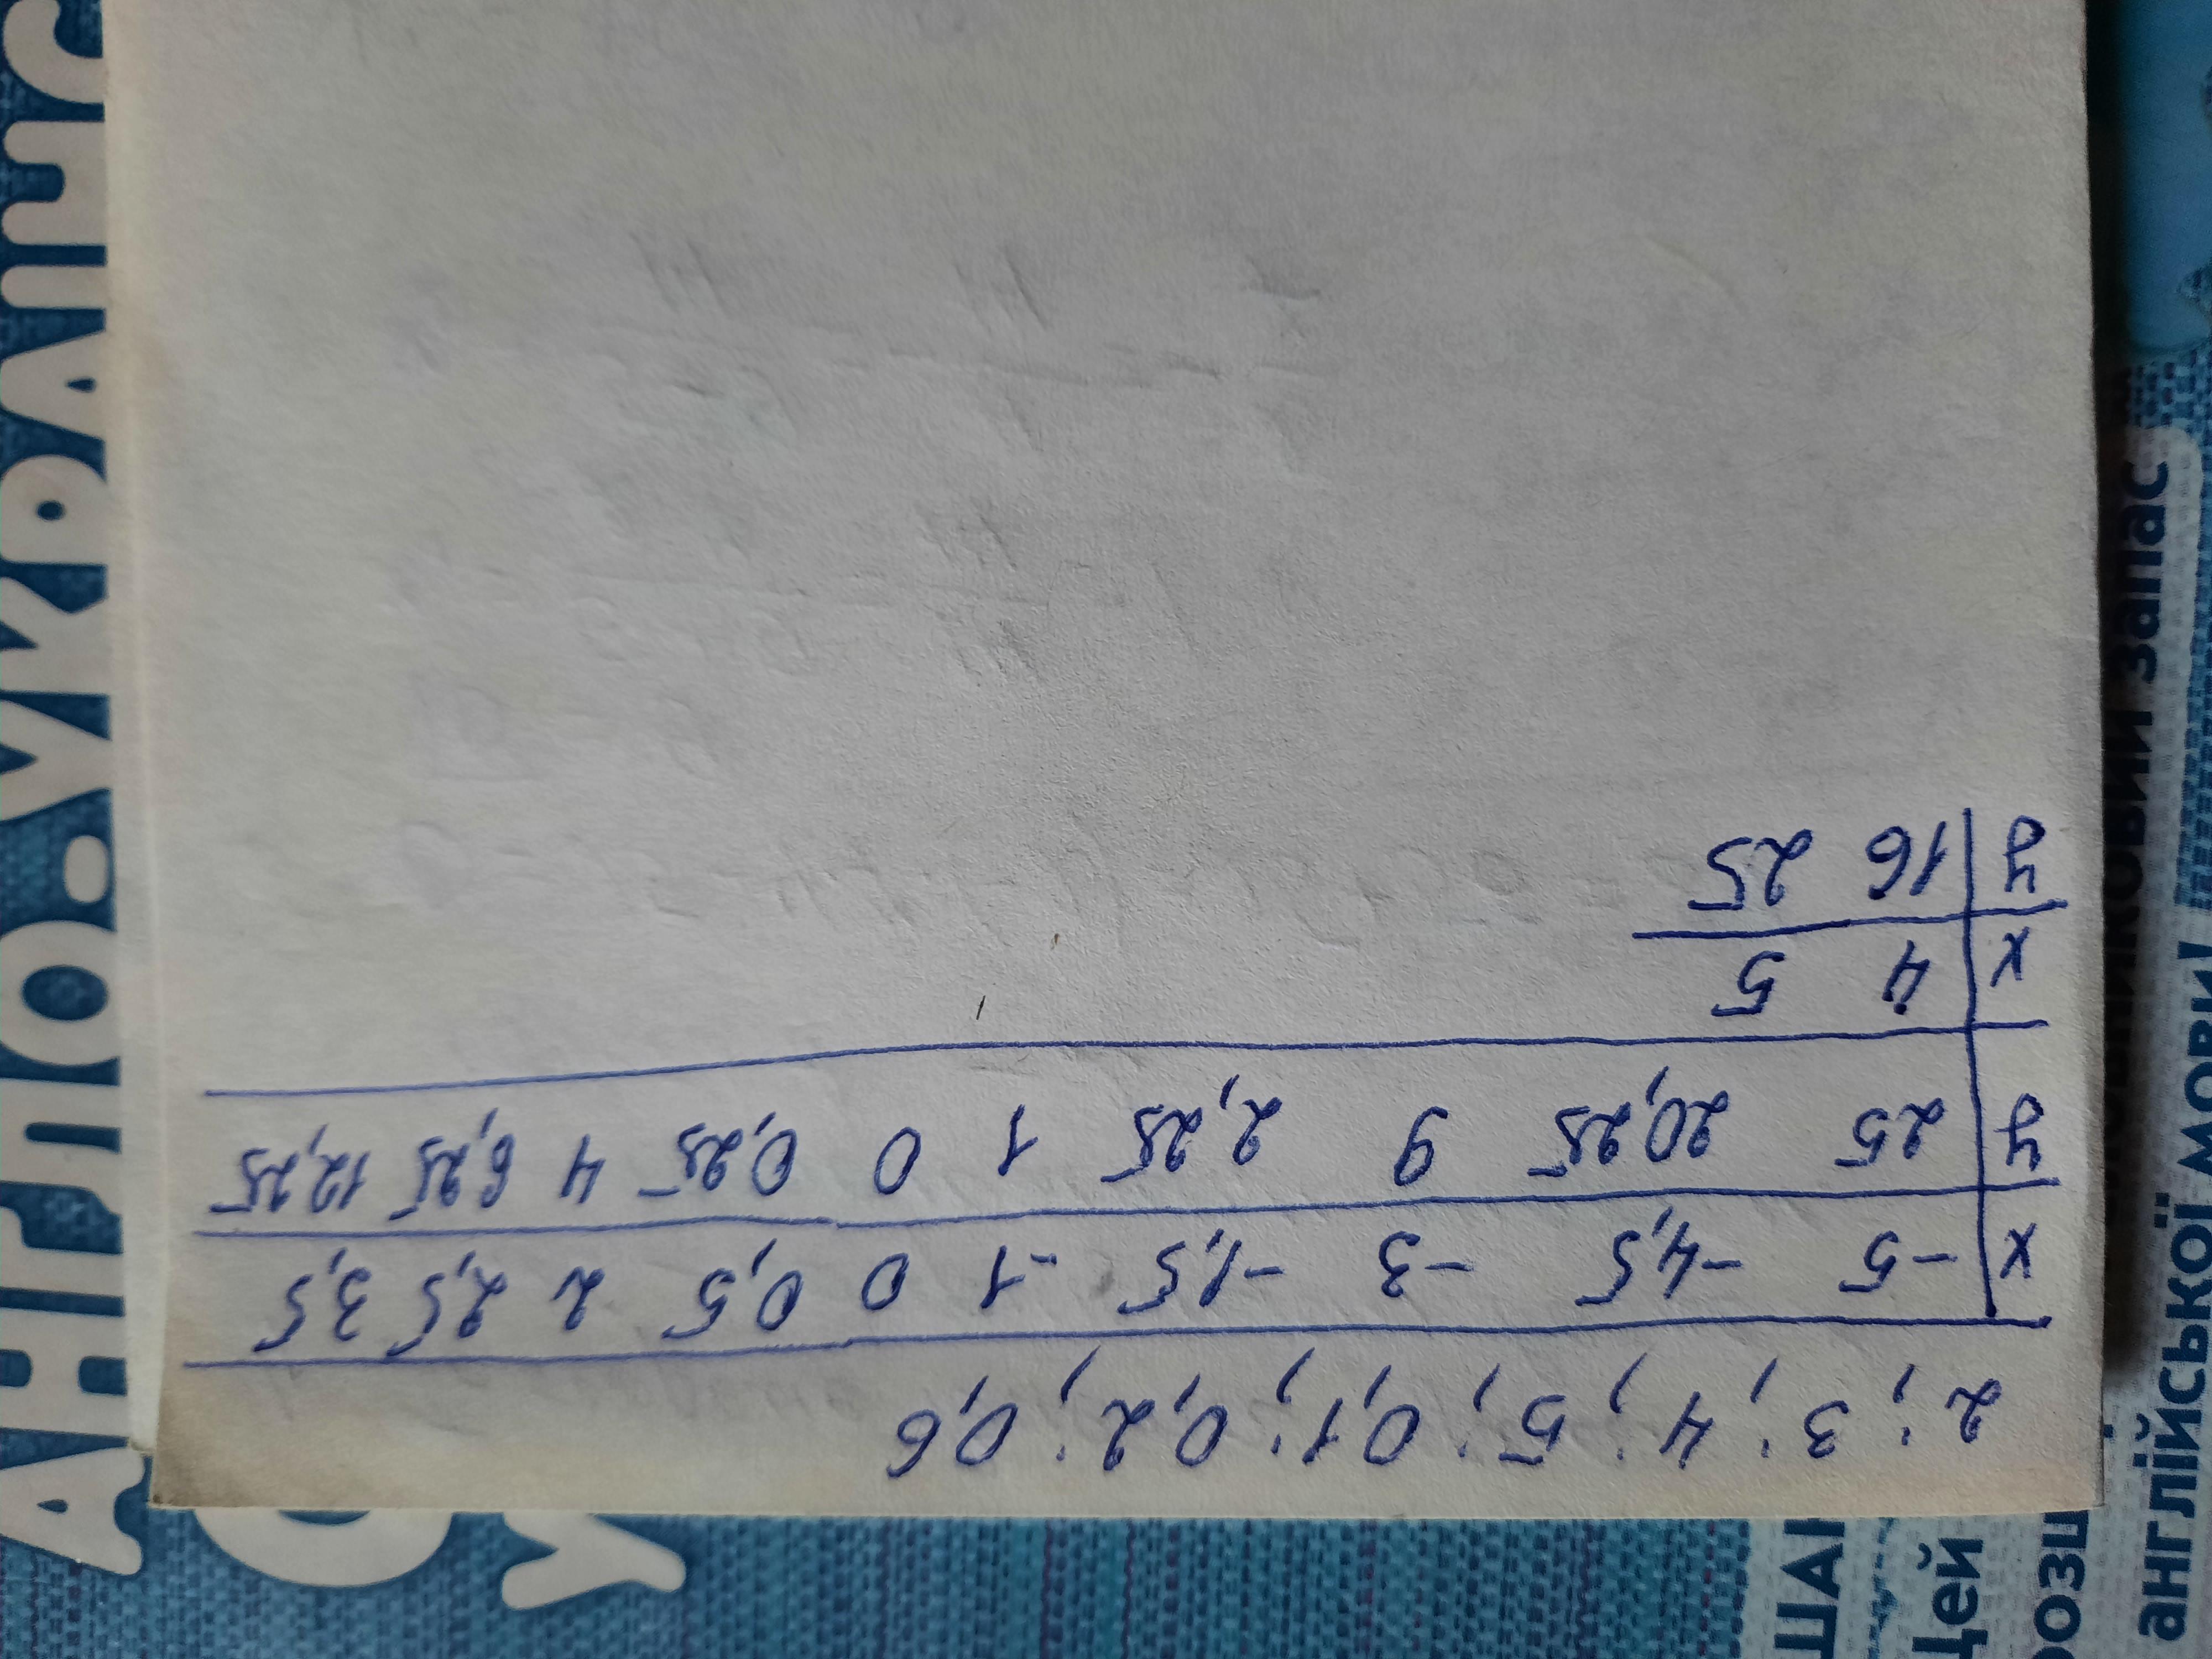 2; 3; 4; 5; 0,1; 0,2; 0,6
x | -5 -4,5 -3 -1,5 -1 0 0,5 2 2,5 3,5
y | 25 20,25 9 2,25 1 0 0,25 4 6,25 12,25
x | 4 5
y | 16 25
АНГЛО-УКРАЇНС
У
запас
мови!
англійської
ШАН
Цей
розш